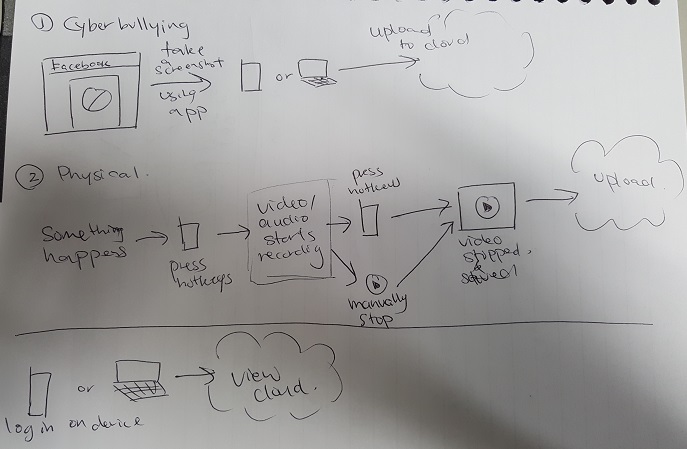 ① Cyberbullying
Facebook
take
screenshot
using
app
or
upload
to cloud
② Physical.
Something
happens
press
hotkeys
video/
audio
starts
recording
press
manually
stop
video
stopped
upload.
or
log in on device
view
cloud.